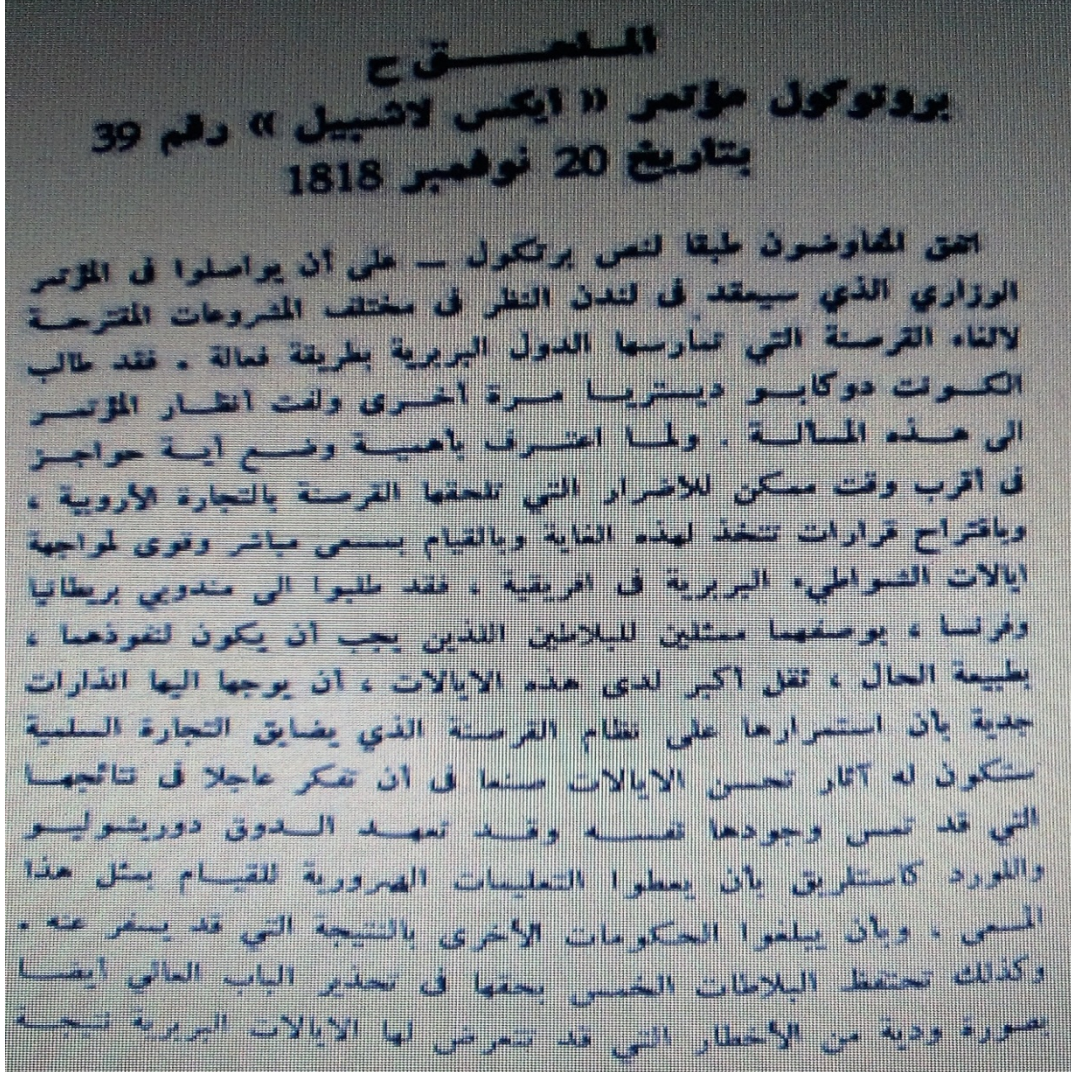 الملحق ح
بروتوكول مؤتمر « ايكس لاشبيل » رقم 39
بتاريخ 20 نوفمبر 1818
اتفق المفاوضون طبقا لنص برتكول — على أن يواصلوا فى المؤتمر
الوزاري الذي سيعقد فى لندن النظر فى مختلف المشروعات المقترحة
لالغاء القرصنة التي تمارسها الدول البربرية بطريقة فعالة . فقد طالب
الكونت دوكابو ديستريا مرة أخرى ولفت أنظار المؤتمر
الى هذه المسألة . ولما اعترف بأهمية وضع أية حواجز
فى أقرب وقت ممكن للأضرار التي تلحقها القرصنة بالتجارة الأروبية ،
وباقتراح قرارات تتخذ لهذه الغاية وبالقيام بمسعى مباشر وقوى لمواجهة
ايالات الشواطىء البربرية فى افريقية ، فقد طلبوا الى مندوبي بريطانيا
وفرنسا ، بوصفهما ممثلين للبلاطين اللذين يجب أن يكون لنفوذهما ،
بطبيعة الحال ، ثقل أكبر لدى هذه الايالات ، أن يوجها اليها انذارات
جدية بأن استمرارها على نظام القرصنة الذي يضايق التجارة السلمية
ستكون له آثار تحسن الايالات صنعا فى أن تفكر عاجلا فى نتائجها
التي قد تمس وجودها نفسه وقد تعهد الدوق دوريشوليو
واللورد كاستلريق بأن يعطوا التعليمات الضرورية للقيام بمثل هذا
المسعى ، وبأن يبلغوا الحكومات الأخرى بالنتيجة التي قد يسفر عنه .
وكذلك تحتفظ البلاطات الخمس بحقها فى تحذير الباب العالي أيضا
بصورة ودية من الأخطار التي قد تتعرض لها الايالات البربرية نتيجة